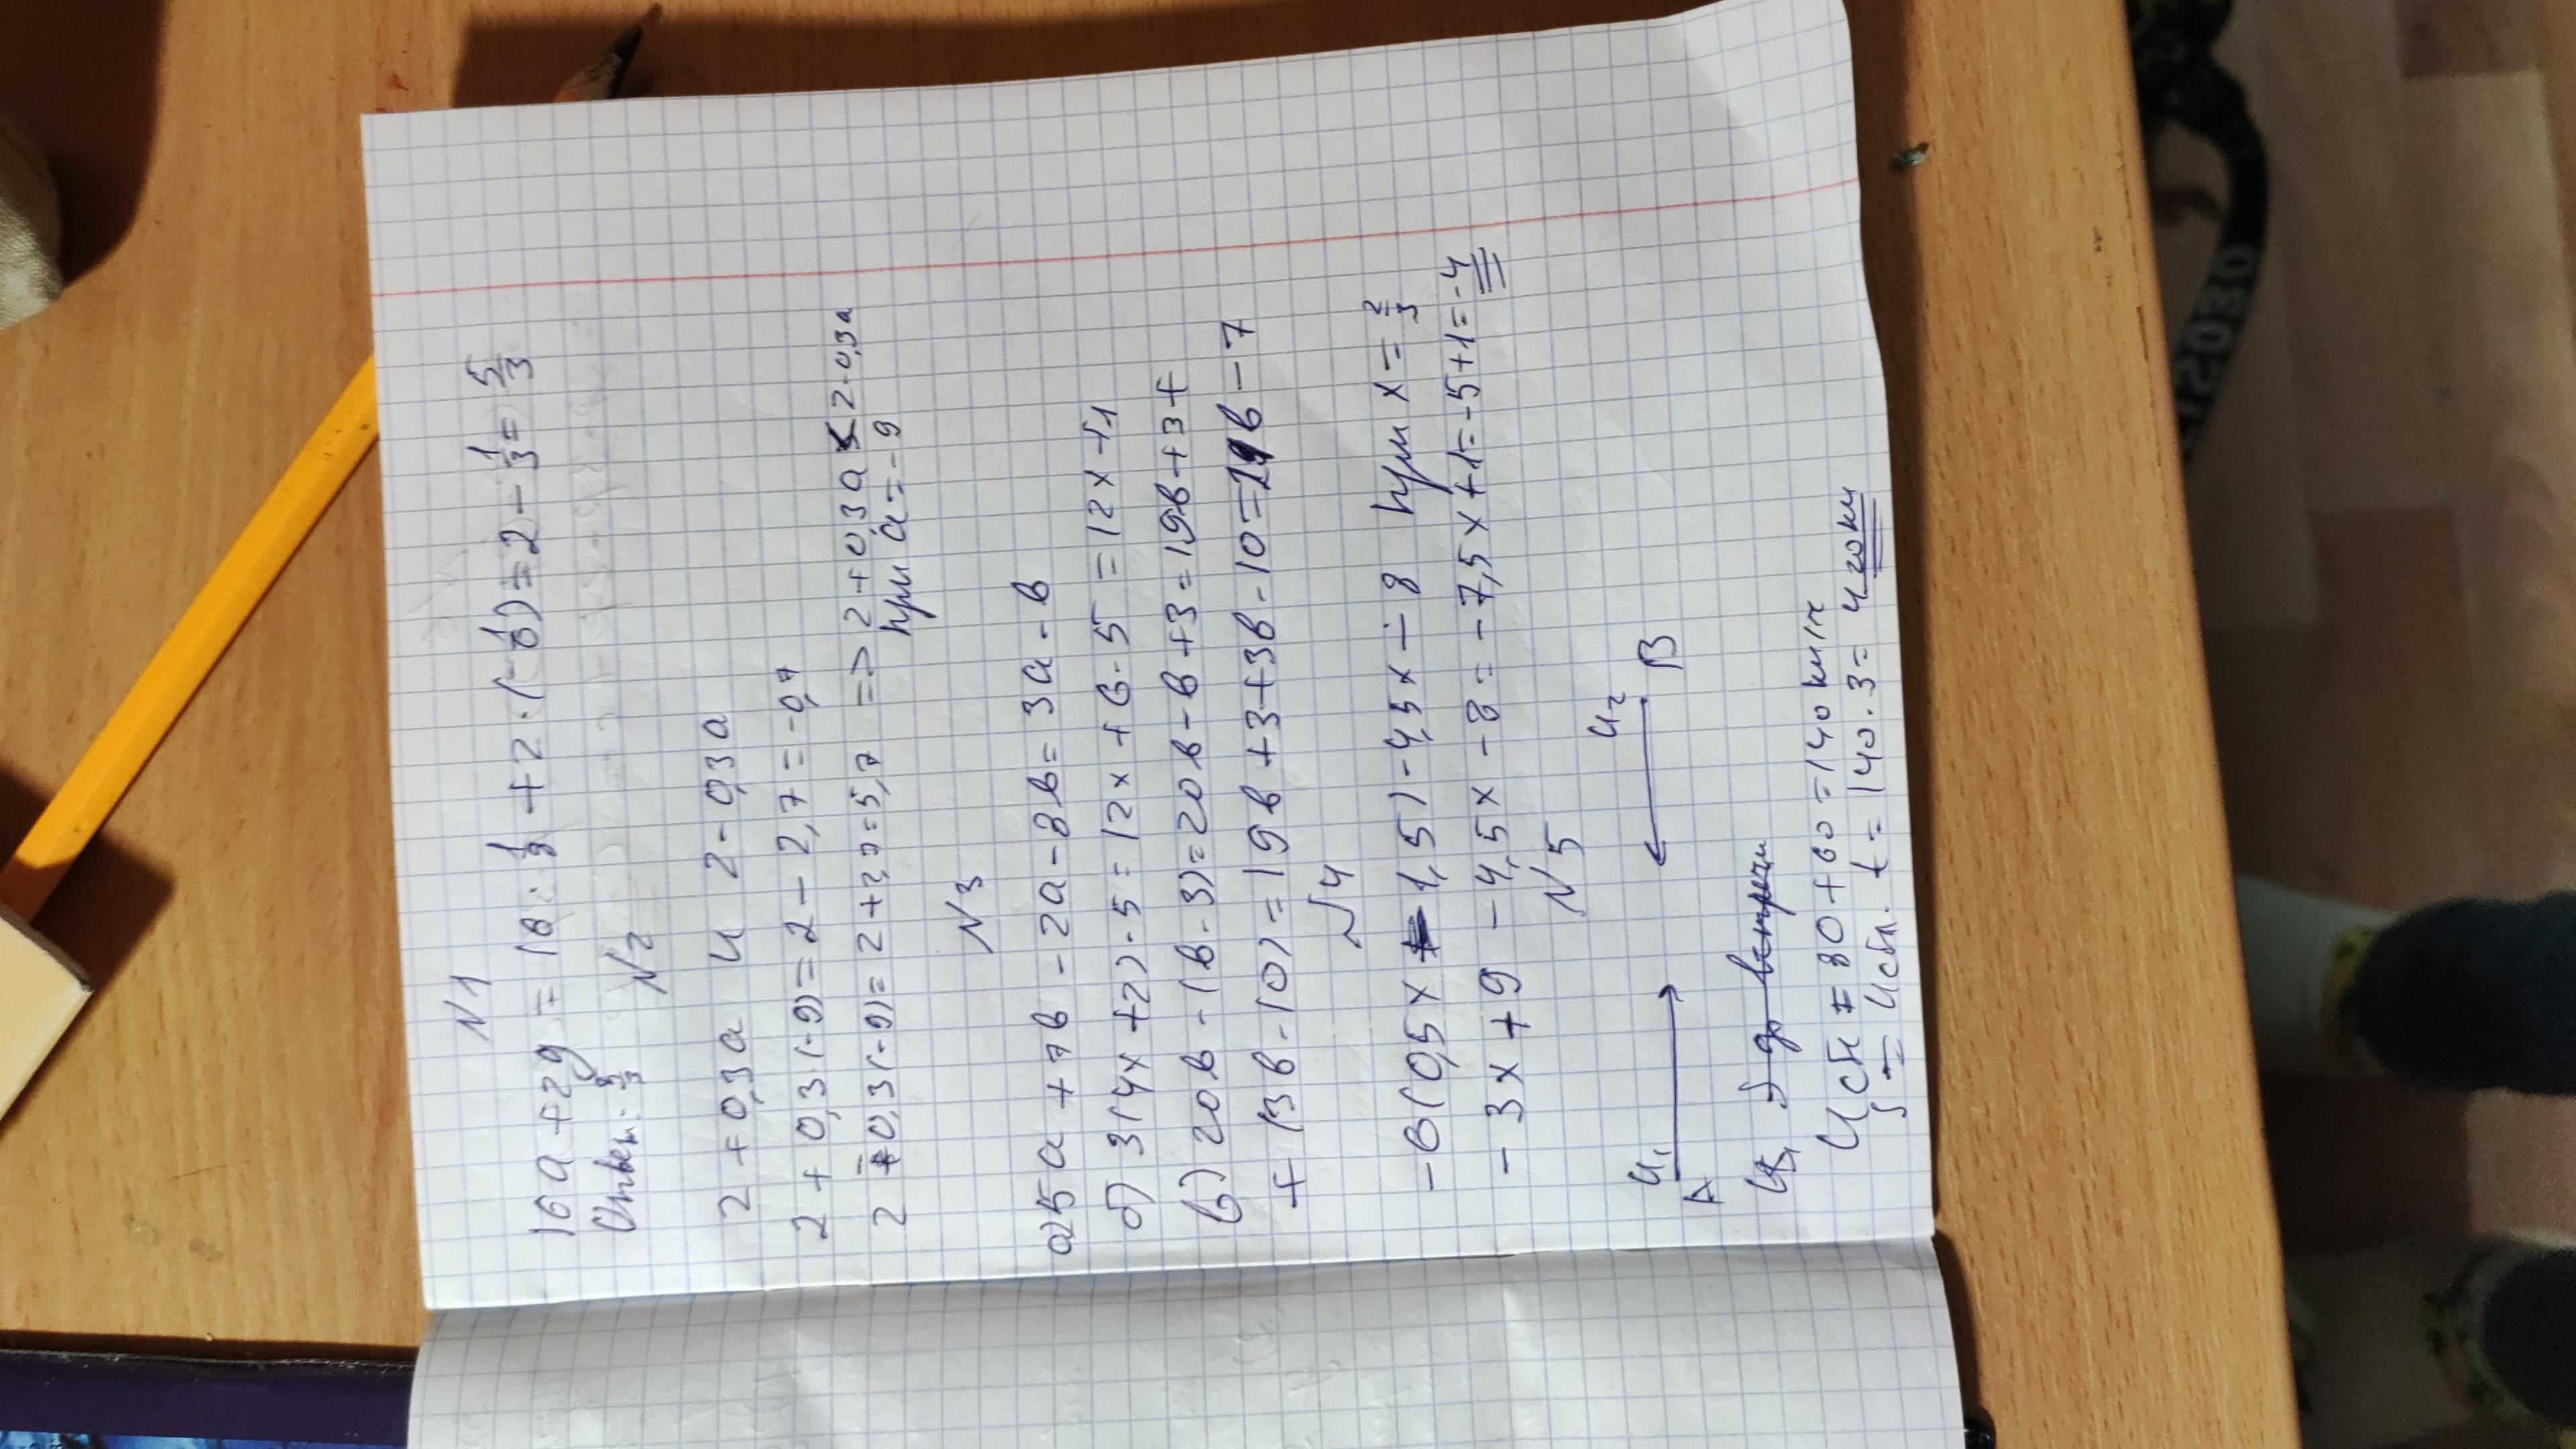 N1
16a + 2y = 16 · 1/8 + 2 · (-1/6) = 2 - 1/3 = 5/3
Ответ: 5/3
N2
2 + 0,3a и 2 - 0,3a
2 + 0,3(-9) = 2 - 2,7 = -0,7
2 - 0,3(-9) = 2 + 2,7 = 5,7 => 2 + 0,3a < 2 - 0,3a
при a = -9
N3
а) 5a + 7b - 2a - 8b = 3a - b
б) 3(4x + 2) - 5 = 12x + 6 - 5 = 12x + 1
в) 20b - (b - 3) = 20b - b + 3 = 19b + 3 +
+ (3b - 10) = 19b + 3 + 3b - 10 = 22b - 7
N4
-6(0,5x - 1,5) - 4,5x - 8 при x = 2/3
- 3x + 9 - 4,5x - 8 = - 7,5x + 1 = -5 + 1 = -4
N5
U1 U2
A B
S до встречи
Uсбл = 80 + 60 = 140 км/ч
S = Uсбл. t = 140 · 3 = 420км
12030